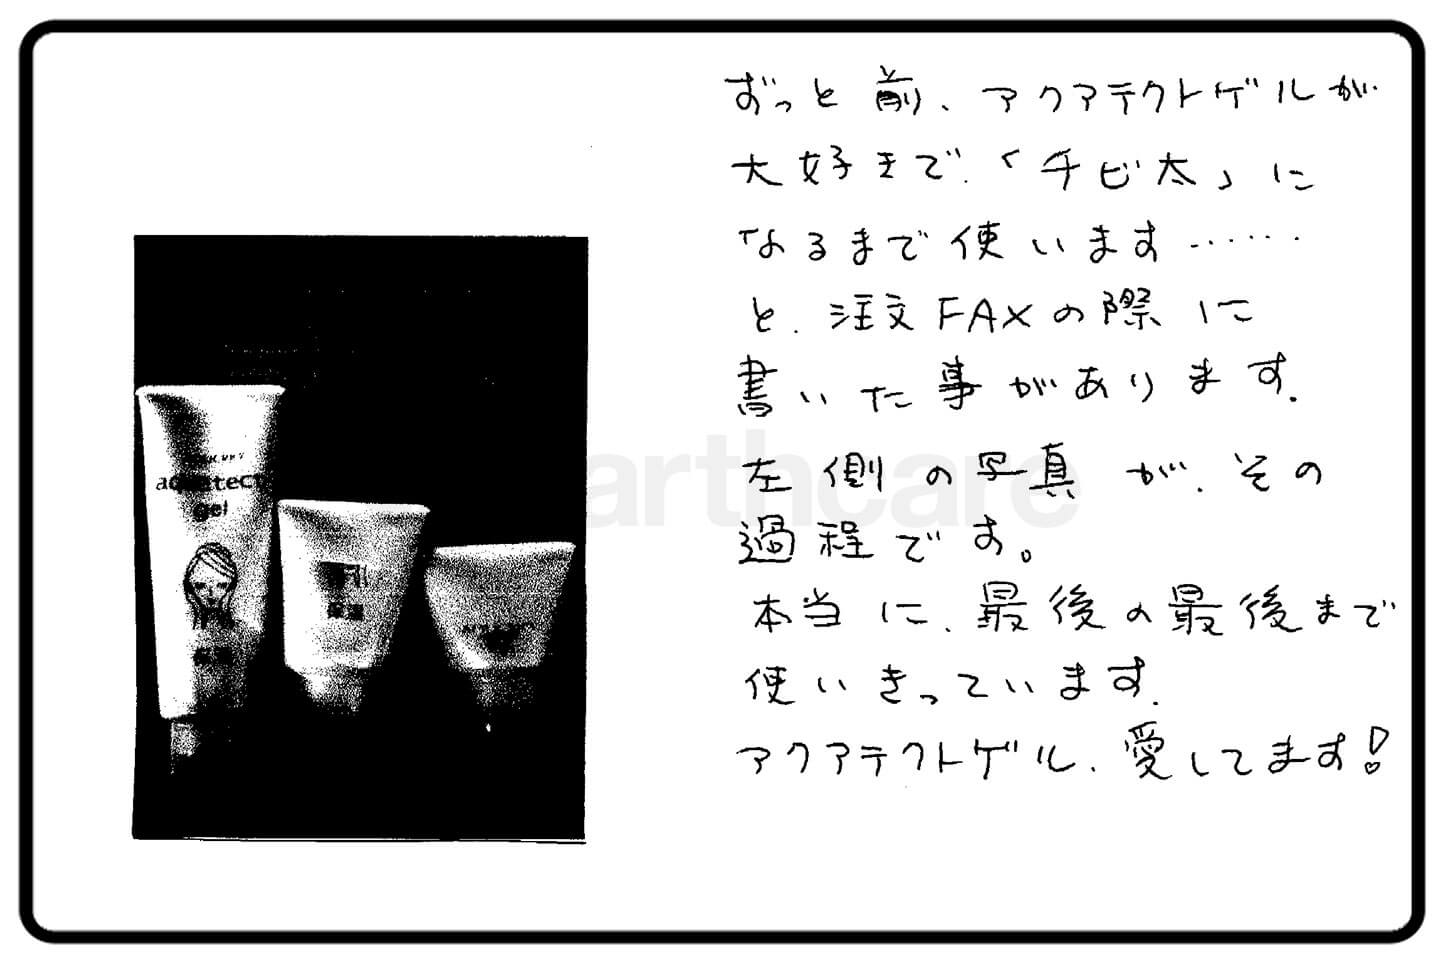 ずっと前、アクアテクトゲルが
大好きで、「チビ太」に
なるまで使います……
と、注文FAXの際に
書いた事があります。
左側の写真が、その
過程です。
本当に、最後の最後まで
使いきっています。
アクアテクトゲル、愛してます!
gel
保湿
arthcare